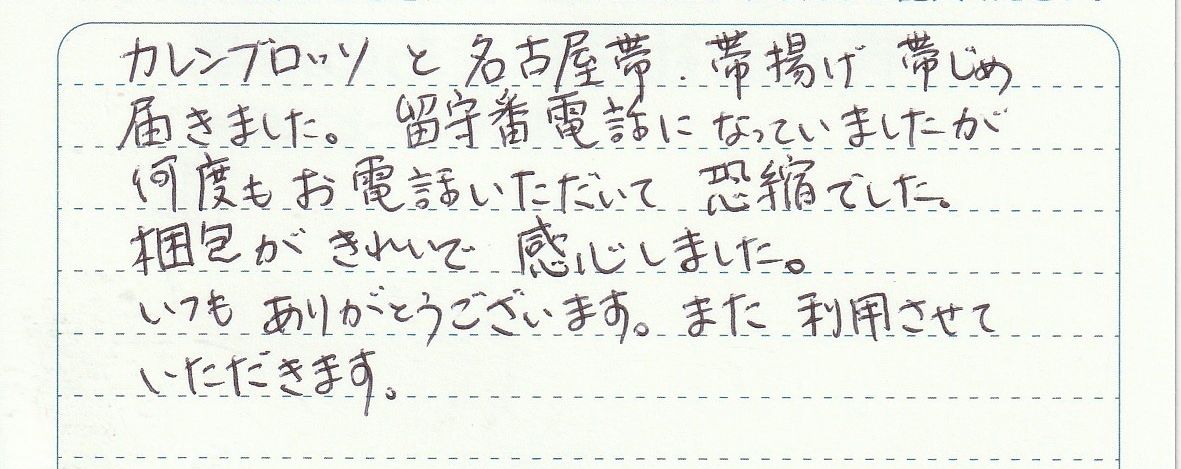 カレンブロッソと名古屋帯.帯揚げ 帯じめ
届きました。留守番電話になっていましたが
何度もお電話いただいて 恐縮でした。
梱包がきれいで 感心しました。
いつもありがとうございます。また利用させて
いただきます。